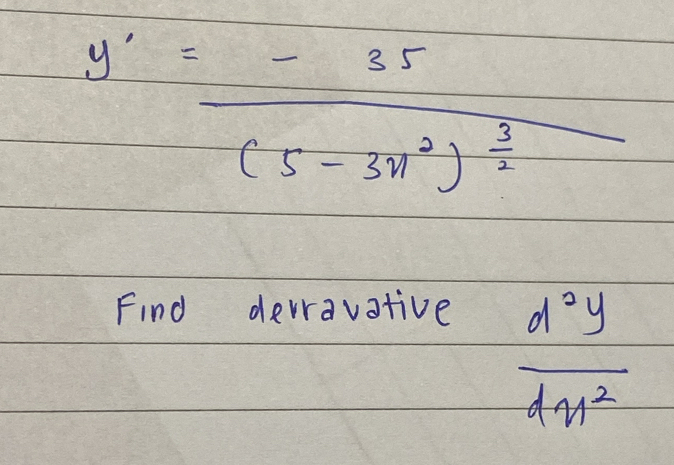 y' = - 35
(5 - 3x²) 3/2
Find derravative d²y
dx²